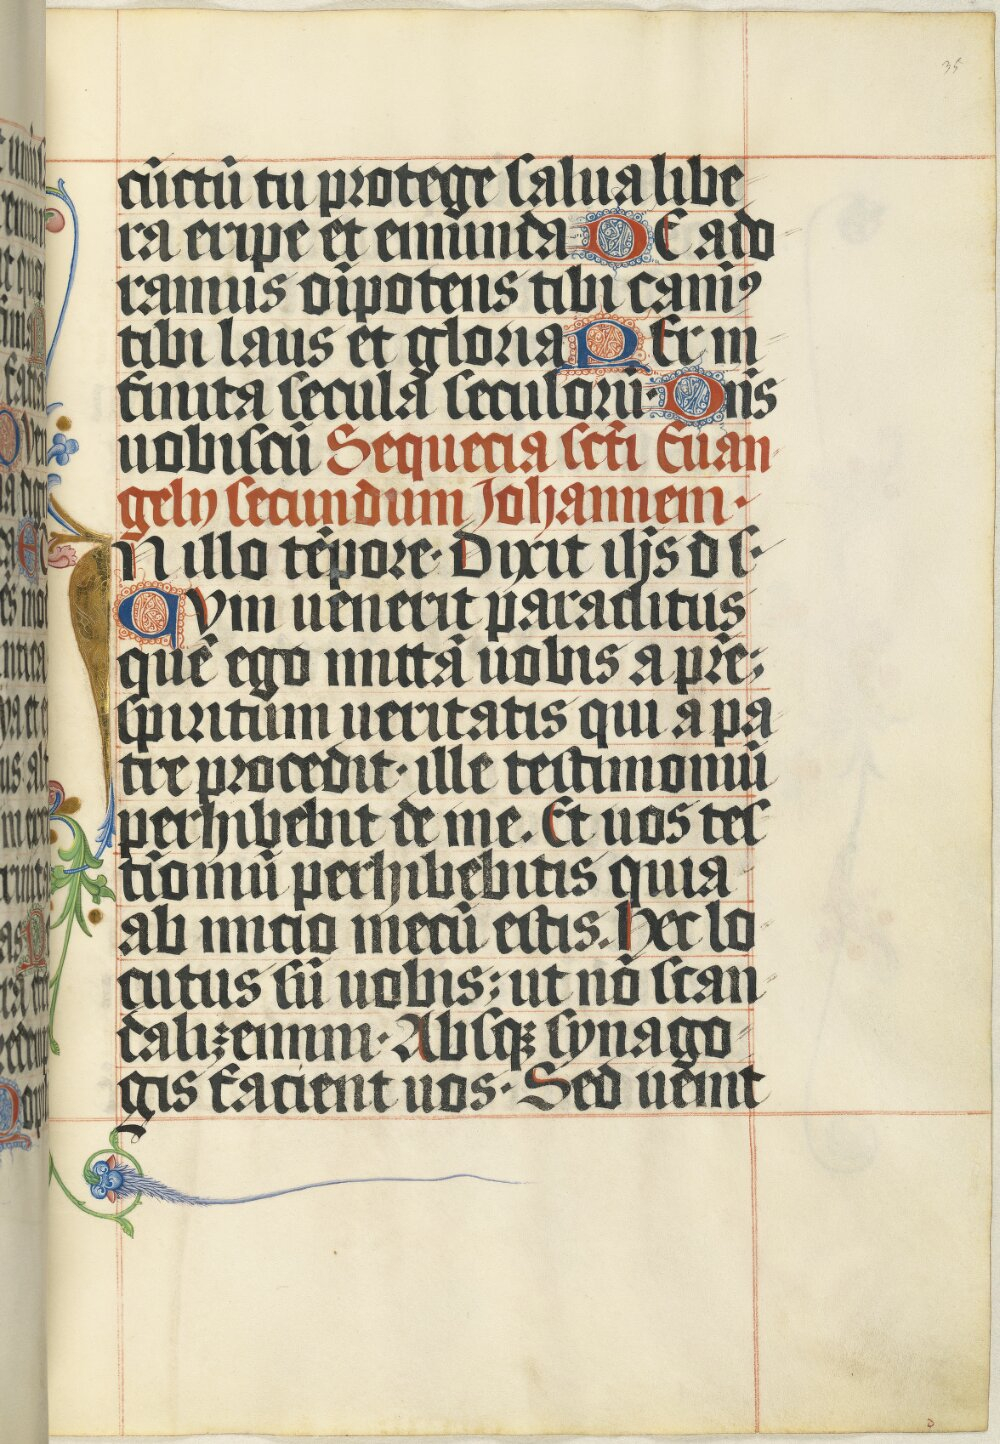 35
cūctū tu protege salua libe
ra eripe et emunda DE ado
ramus oīpotens tibi canimꝰ
tibi laus et gloria PEr in
finita secula seculorū. Dn̄s
uobiscū Sequēcia scīti Euan
gelij secundum Johannem.
IN illo tēpore. Dixit ih̄s d s.
Cvm uenerit paraclitus
quē ego mittā uobis a pr̄e;
spiritum ueritatis qui a pa
tre procedit. ille testimoniū
perhibebit de me. Et uos tes
tiomū perhibebitis quia
ab inicio mecū estis. Hec lo
cutus sū uobis; ut nō scan
dalizemini. Absqꝫ synago
gis facient uos. Sed uenit
D